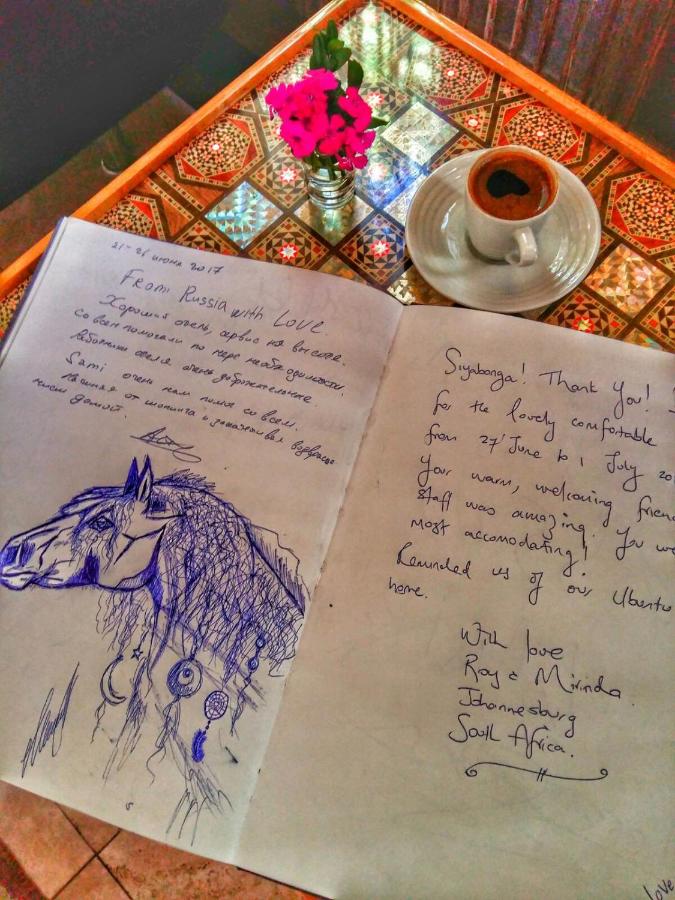 21-26 июня 2017
From Russia with Love.
Хороший отель, сервис на высоте.
Со всем помогали по мере необходимости,
Работники отеля очень доброжелательные.
Sami очень нам помог со всем.
Начиная от шопинга и заканчивая
домой.
Siyabonga! Thank You!
for the lovely comfortable
from 27 June to 1 July
Your warm, welcoming
staff was amazing. You
most accomodating!
Reminded us of our Ubuntu
home.
With love
Roy & Mirinda.
Johannesburg
South Africa.
love